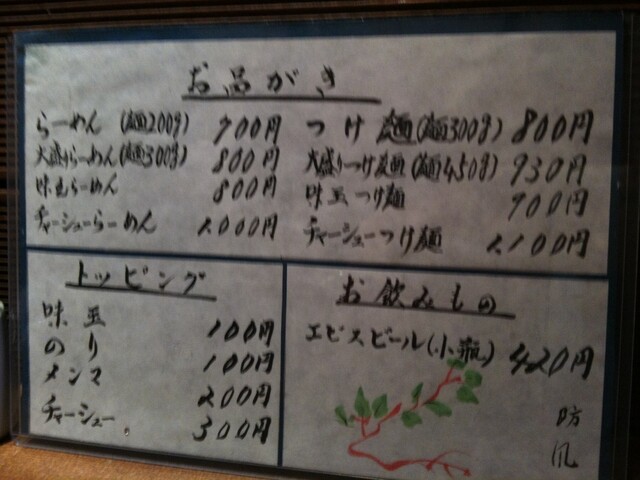 お品がき
らーめん (麺200g) 700円
大盛らーめん(麺300g) 800円
味玉らーめん 800円
チャーシューらーめん 1.000円
つけ麺(麺300g) 800円
大盛りつけ麺(麺450g) 930円
味玉つけ麺 900円
チャーシューつけ麺 1.100円
トッピング
味玉 100円
のり 100円
メンマ 200円
チャーシュー 300円
お飲みもの
エビスビール(小瓶) 420円
防